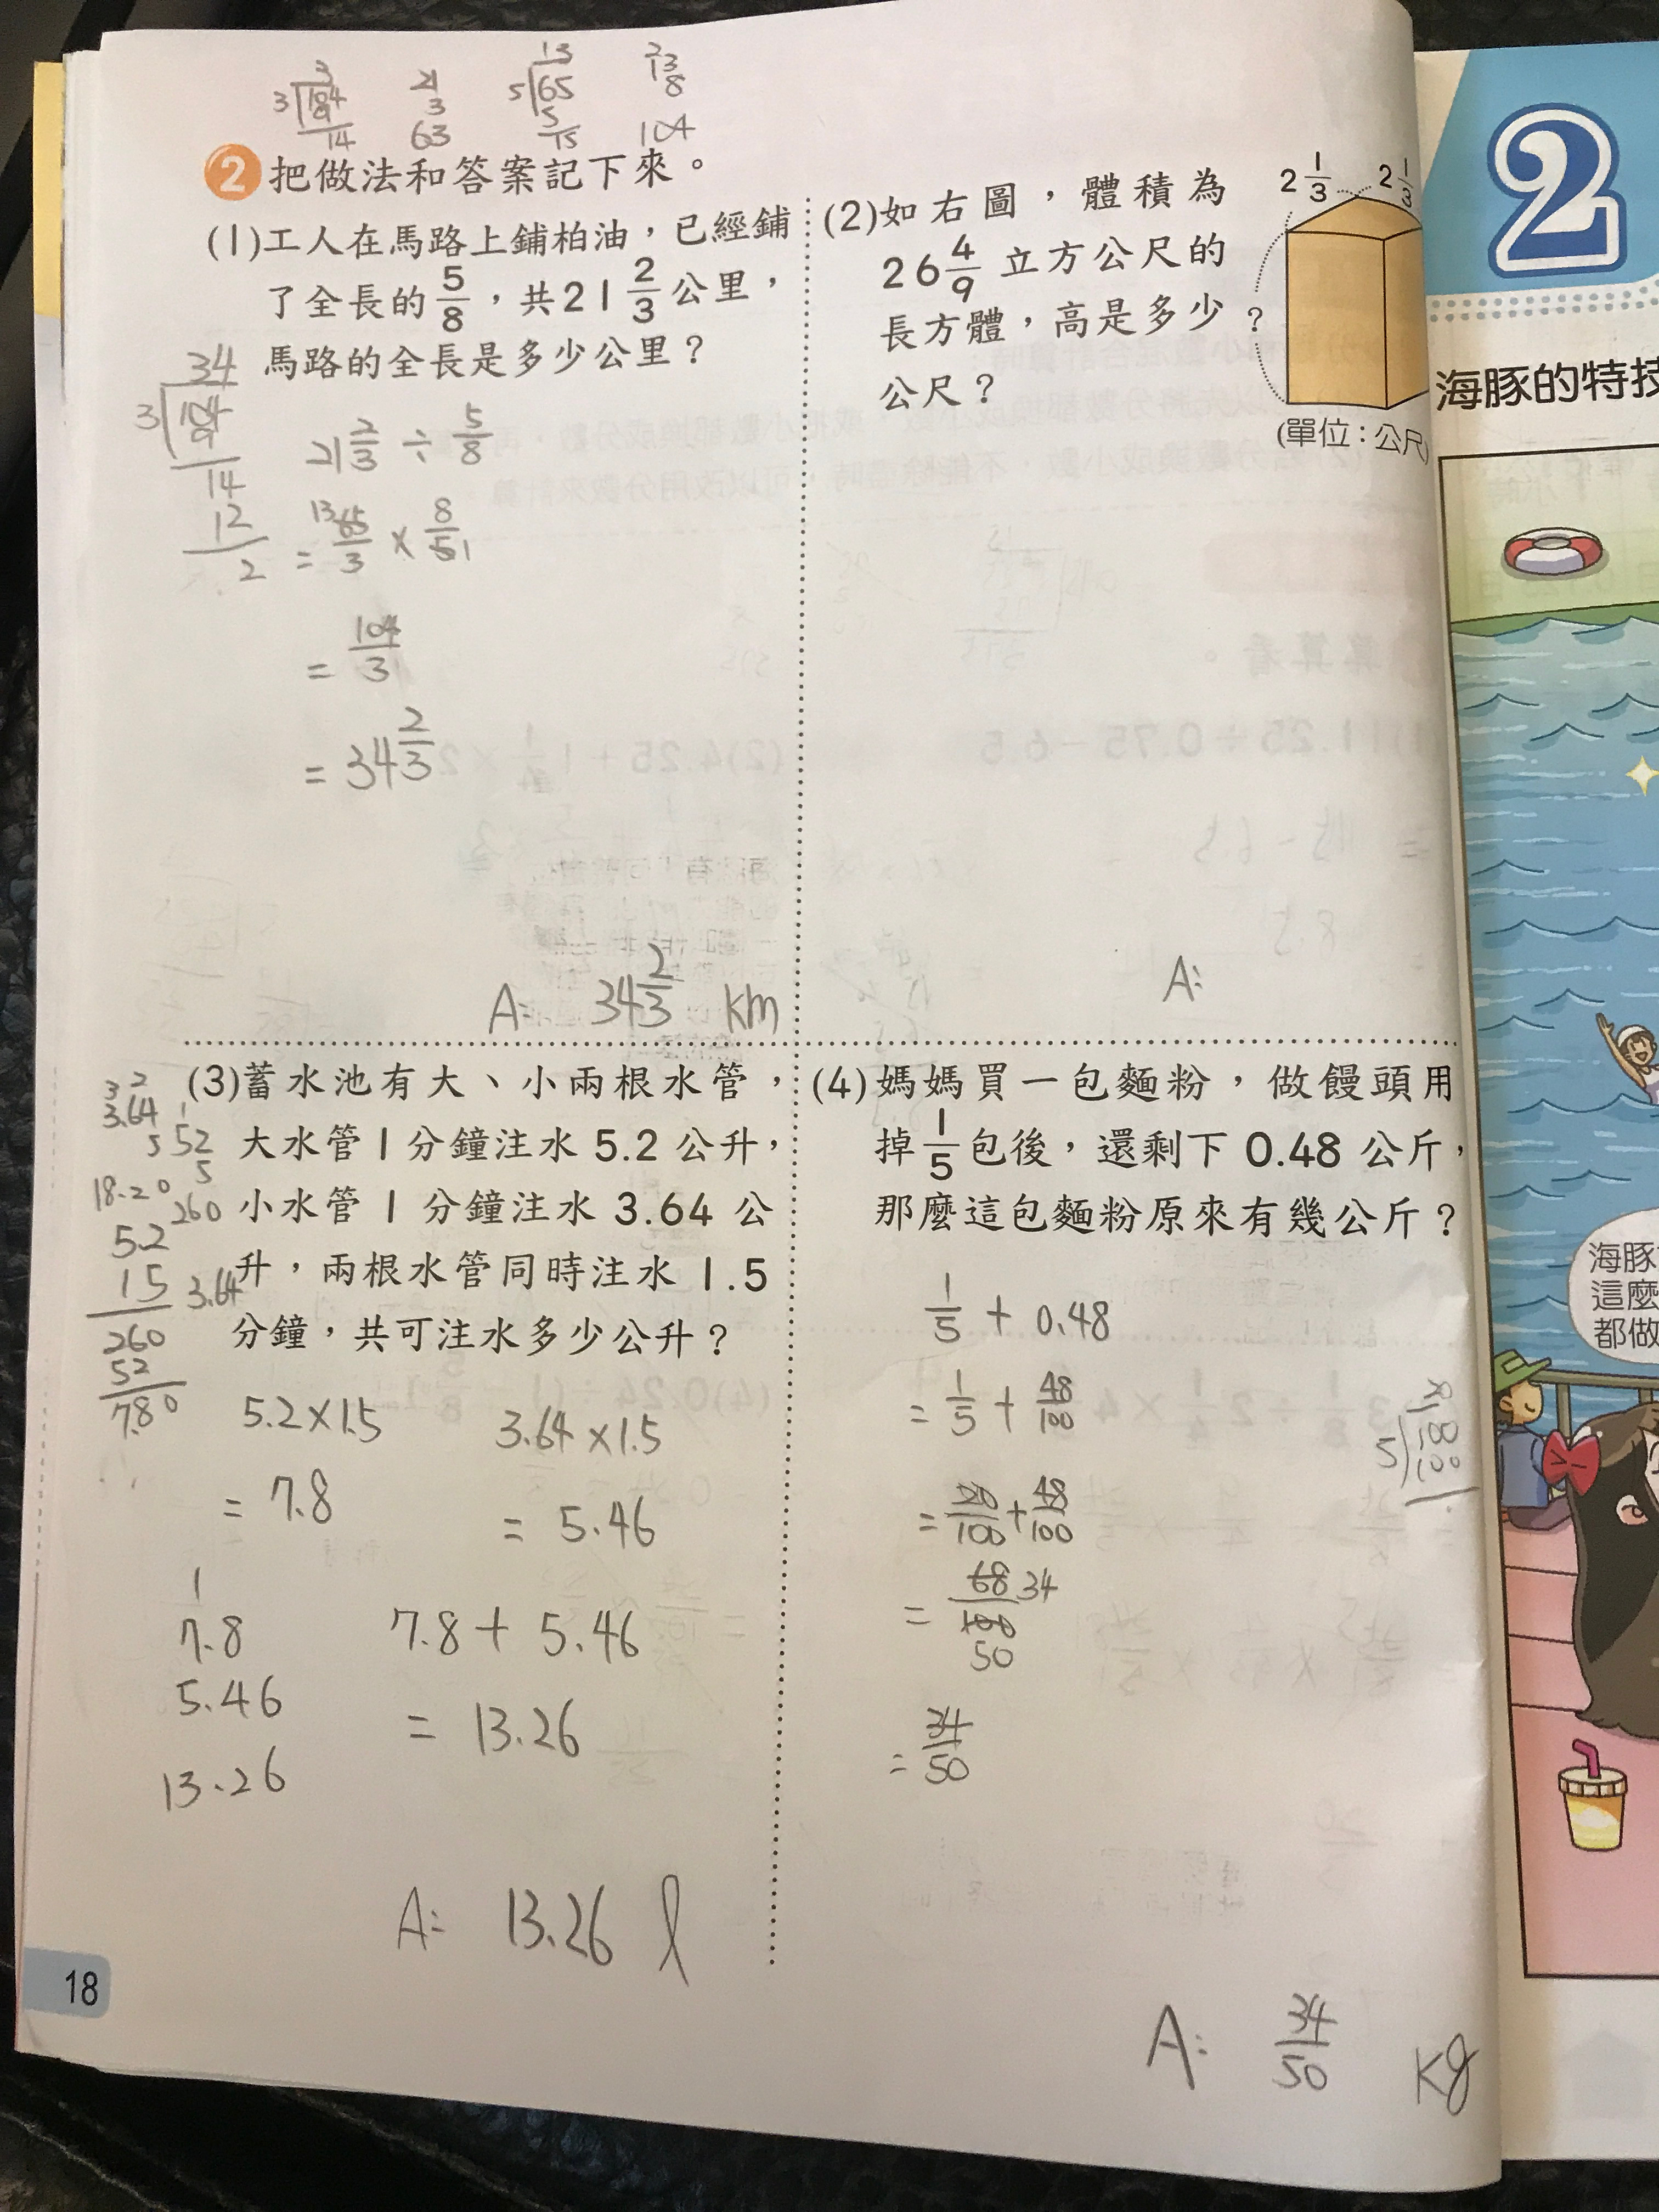 3 104 3
9
14
21
3
63
13
5 65
5
15
13
8
104
2 把做法和答案記下來。
(1)工人在馬路上鋪柏油，已經鋪
了全長的 5/8，共21 2/3 公里，
馬路的全長是多少公里？
34
3 104
9
14
12
2
21 2/3 ÷ 5/8
= 65/3 × 8/5
= 104/3
= 34 2/3
A: 34 2/3 km
(2)如右圖，體積為
26 4/9 立方公尺的
長方體，高是多少
公尺？
2 1/3
2 1/3
?
(單位：公尺)
A:
(3)蓄水池有大、小兩根水管，
大水管1分鐘注水 5.2 公升，
小水管 1 分鐘注水 3.64 公
升，兩根水管同時注水 1.5
分鐘，共可注水多少公升？
3 2
3.64
5
18.20
1
52
5
260
5.2
15
260
52
7.80
3.64
5.2×1.5
= 7.8
3.64×1.5
= 5.46
1
7.8
5.46
13.26
7.8 + 5.46
= 13.26
A: 13.26 l
(4)媽媽買一包麵粉，做饅頭用
掉 1/5 包後，還剩下 0.48 公斤，
那麼這包麵粉原來有幾公斤？
1/5 + 0.48
= 1/5 + 48/100
= 20/100 + 48/100
= 68/100 34
50
= 34/50
A: 34/50 kg
18
2
海豚的特技
海豚
這麼
都做